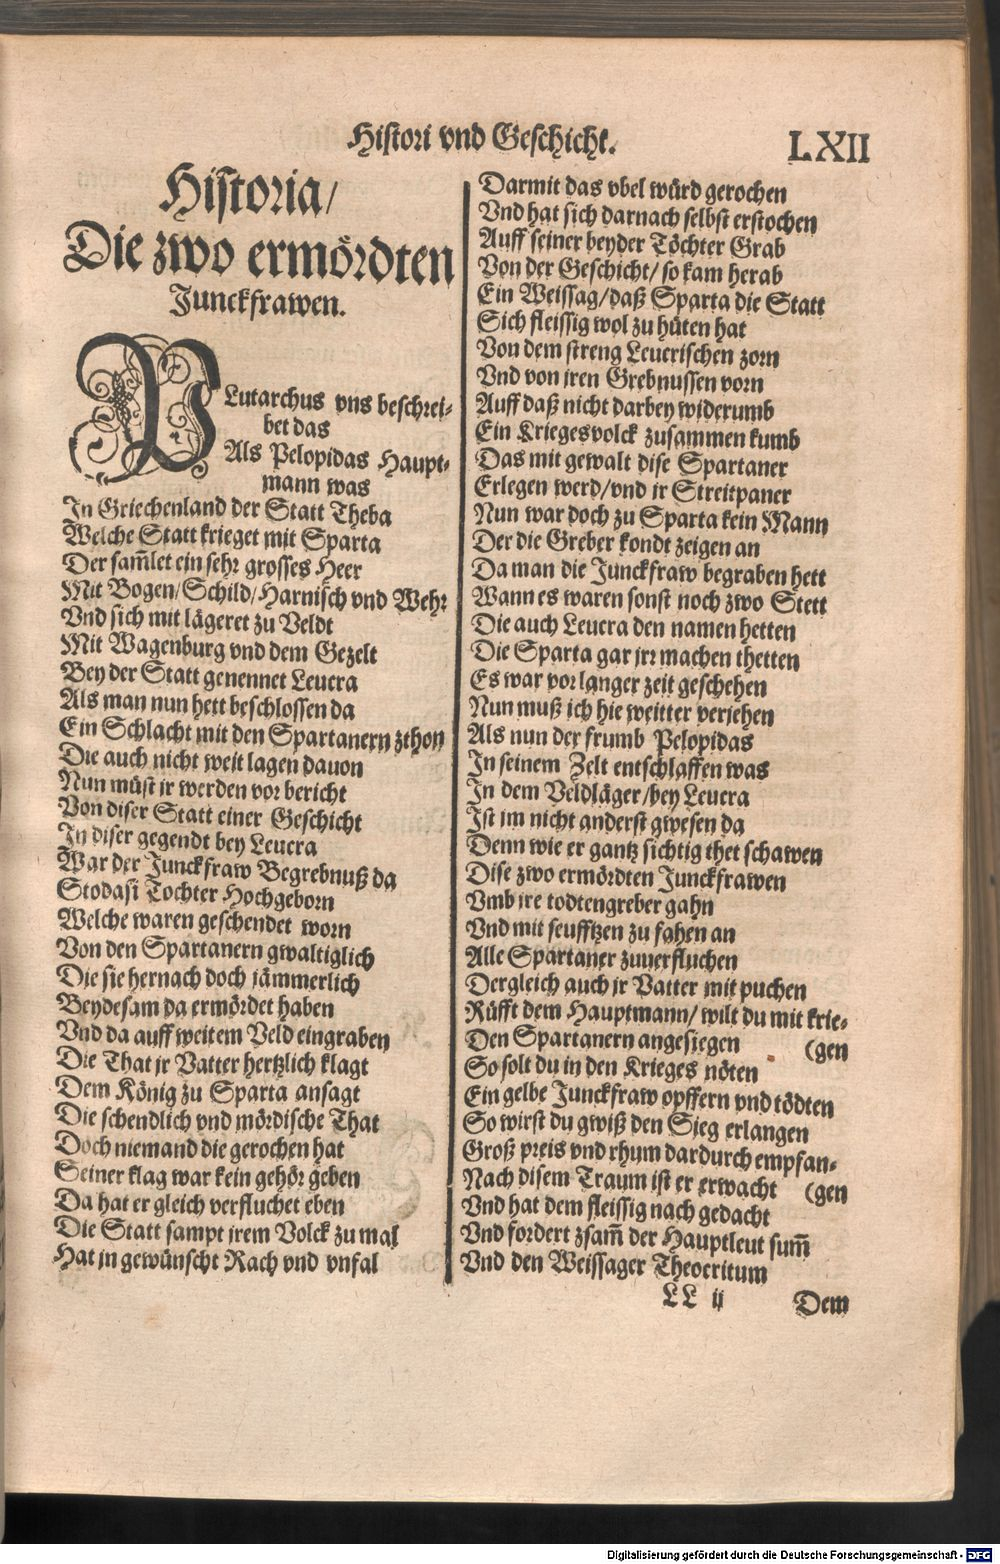 Histori vnd Geschicht.
LXII
Historia/
Die zwo ermördten
Junckfrawen.
PLutarchus vns beschrei-
bet das
Als Pelopidas Haupt-
mann was
In Griechenland der Statt Theba
Welche Statt krieget mit Sparta
Der sam̃let ein sehr grosses Heer
Mit Bogen/Schild/Harnisch vnd Wehr
Vnd sich mit lägeret zu Veldt
Mit Wagenburg vnd dem Gezelt
Bey der Statt genennet Leucra
Als man nun hett beschlossen da
Ein Schlacht mit den Spartanern zthon
Die auch nicht weit lagen dauon
Nun müst ir werden vor bericht
Von diser Statt einer Geschicht
In diser gegendt bey Leucra
War der Junckfraw Begrebnuß da
Stodasi Tochter Hochgeborn
Welche waren geschendet worn
Von den Spartanern gwaltiglich
Die sie hernach doch jämmerlich
Beydesam da ermördet haben
Vnd da auff weitem Veld eingraben
Die That jr Vatter hertzlich klagt
Dem König zu Sparta ansagt
Die schendlich vnd mördische That
Doch niemand die gerochen hat
Seiner klag war kein gehör geben
Da hat er gleich verfluchet eben
Die Statt sampt jrem Volck zu mal
Hat jn gewünscht Rach vnd vnfal
Darmit das vbel würd gerochen
Vnd hat sich darnach selbst erstochen
Auff seiner beyder Töchter Grab
Von der Geschicht/ so kam herab
Ein Weissag/daß Sparta die Statt
Sich fleissig wol zu hüten hat
Von dem streng Leucrischen zorn
Vnd von jren Grebnussen vorn
Auff daß nicht darbey widerumb
Ein Kriegesvolck zusammen kumb
Das mit gewalt dise Spartaner
Erlegen werd/vnd jr Streitpaner
Nun war doch zu Sparta kein Mann
Der die Greber kondt zeigen an
Da man die Junckfraw begraben hett
Wann es waren sonst noch zwo Stett
Die auch Leucra den namen hetten
Die Sparta gar jrr machen thetten
Es war vor langer zeit geschehen
Nun muß ich hie weitter verjehen
Als nun der frumb Pelopidas
In seinem Zelt entschlaffen was
In dem Veldläger/bey Leucra
Ist im nicht anderst gwesen da
Denn wie er gantz sichtig thet schawen
Dise zwo ermördten Junckfrawen
Vmb jre todtengreber gahn
Vnd mit seufftzen zu fahen an
Alle Spartaner zuuerfluchen
Dergleich auch jr Vatter mit puchen
Rüfft dem Hauptmann/ wilt du mit krie-
Den Spartanern angesiegen (gen
So solt du in den Krieges nöten
Ein gelbe Junckfraw opffern vnd tödten
So wirst du gwiß den Sieg erlangen
Groß preis vnd rhum dardurch empfan-
Nach disem Traum ist er erwacht (gen
Vnd hat dem fleissig nach gedacht
Vnd fordert zsam̃ der Hauptleut sum̃
Vnd den Weissager Theocritum
LL ij
Dem
Digitalisierung gefördert durch die Deutsche Forschungsgemeinschaft - DFG